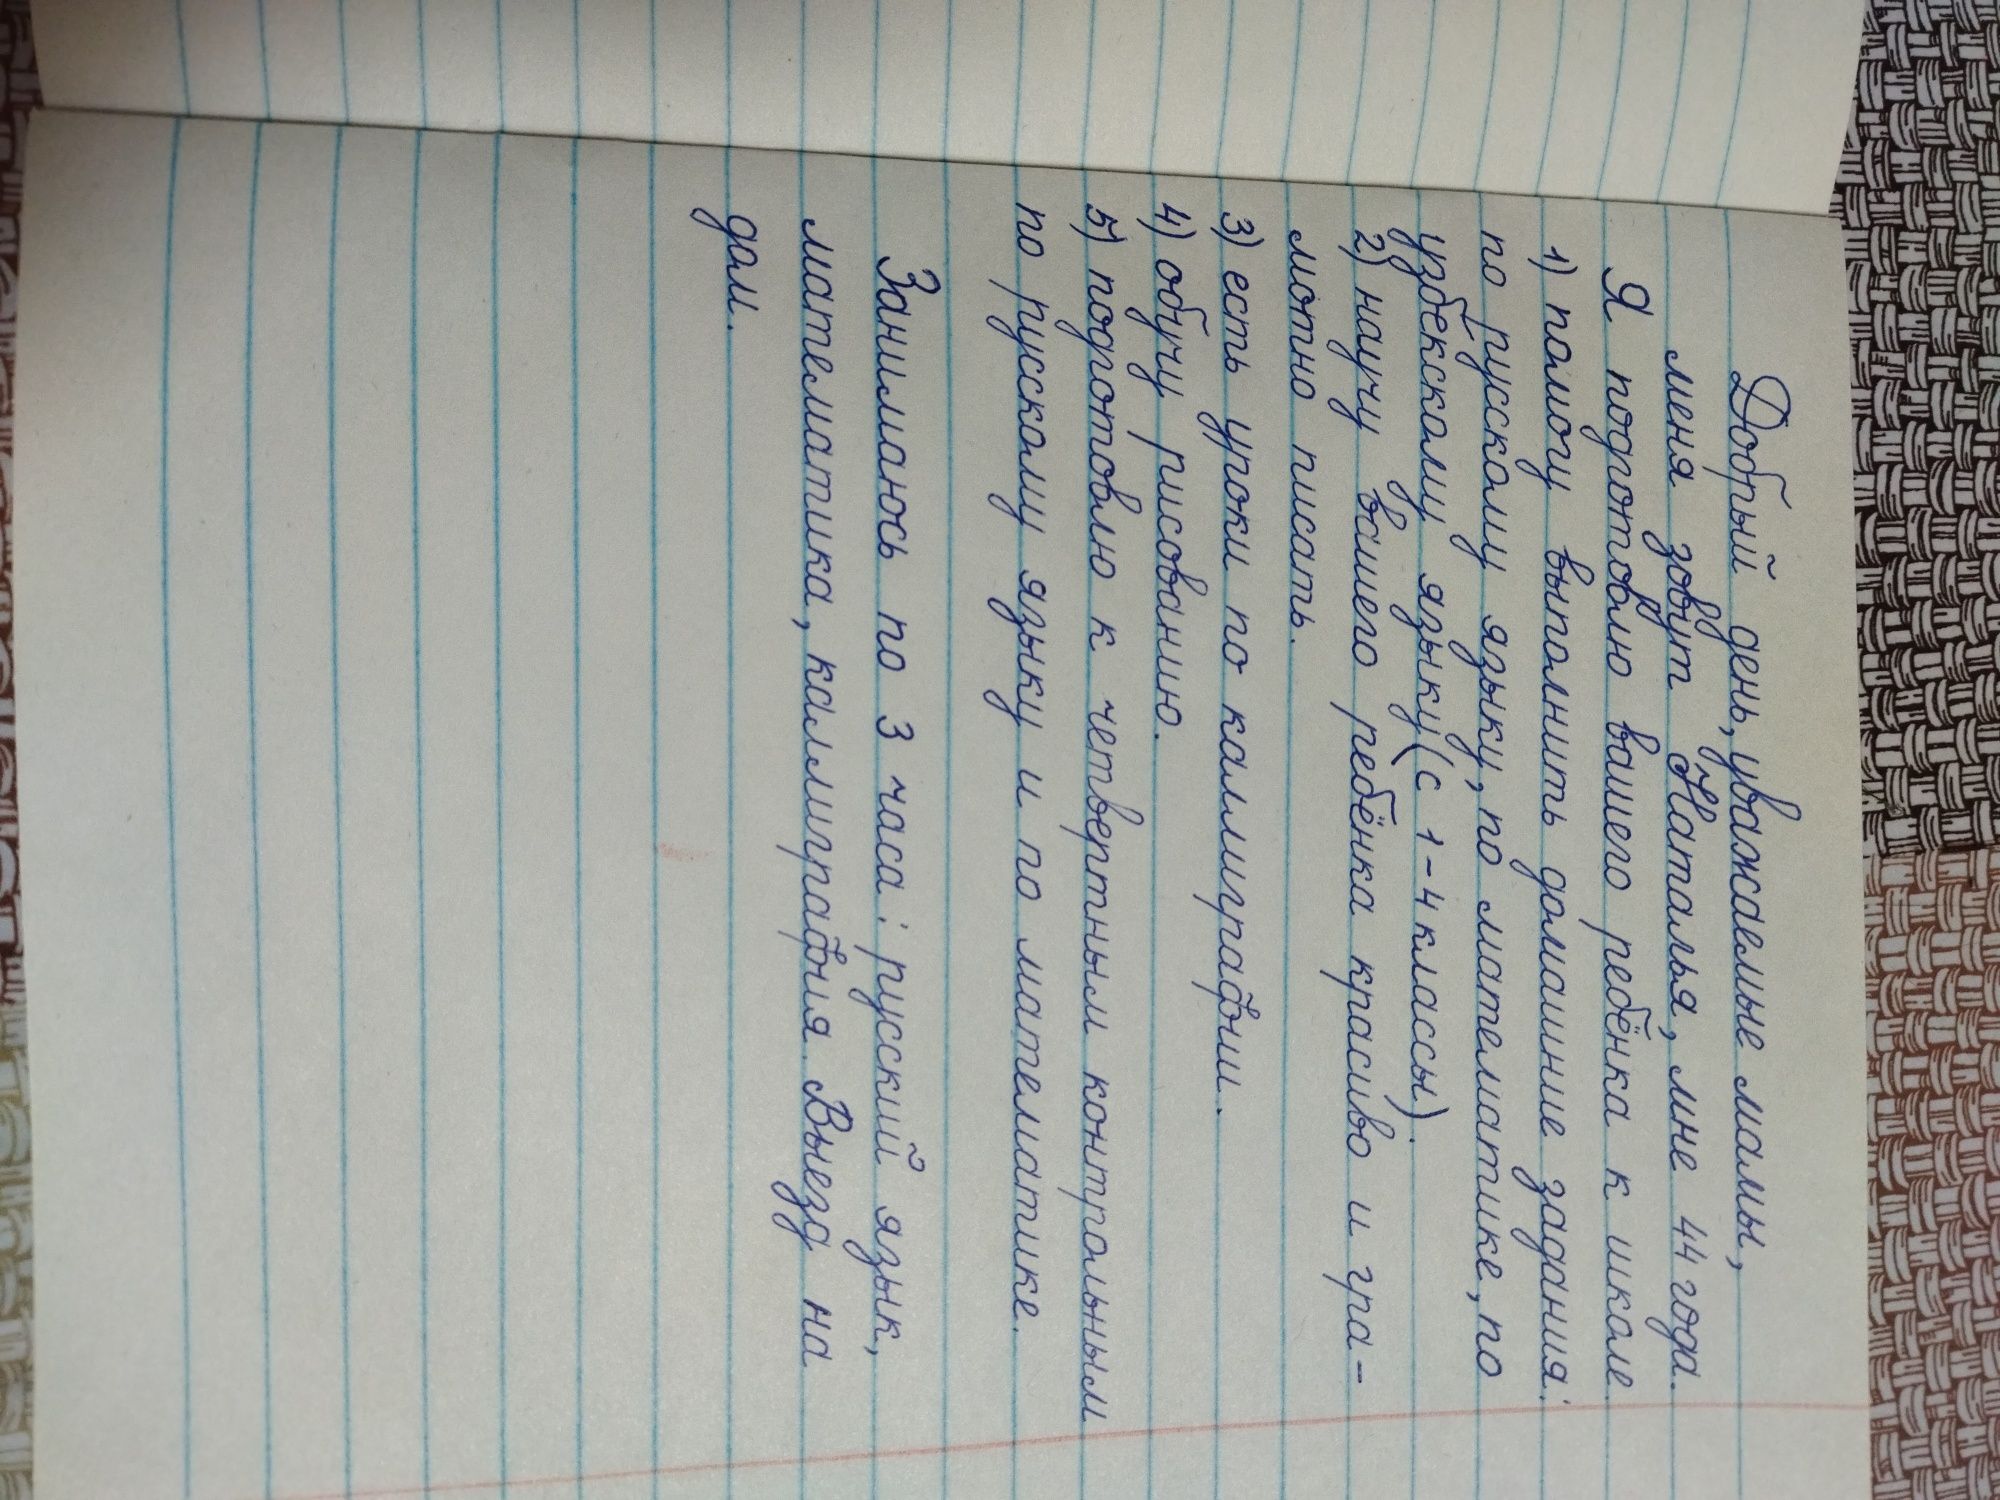 Добрый день, уважаемые мамы,
меня зовут Наталья, мне 44 года.
Я подготовлю вашего ребёнка к школе.
1) помогу выполнить домашние задания:
по русскому языку, по математике, по
узбекскому языку (с 1-4 классы).
2) научу вашего ребёнка красиво и гра-
мотно писать.
3) есть уроки по каллиграфии.
4) обучу рисованию.
5) подготовлю к четвертным контрольным
по русскому языку и по математике.
Занимаюсь по 3 часа: русский язык,
математика, каллиграфия. Выезд на
дом.